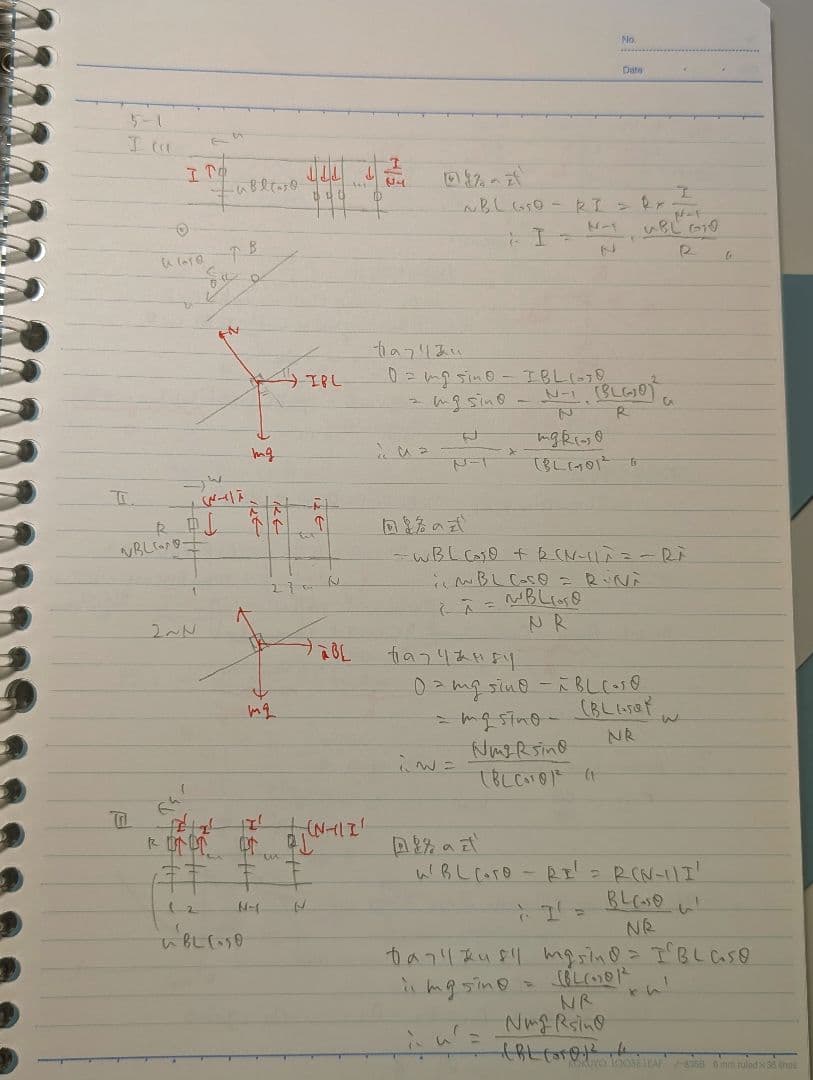 No.
Date
5-1
I (1)
← u
I ↑
uBLcosθ
I/(N-1)
回路の式
uBLcosθ - RI = R × I/(N-1)
∴ I = (N-1)/N · uBLcosθ/R
ucosθ
↑B
θ
u
N
IBL
mg
力のつりあい
0 = mg sinθ - IBLcosθ
= mg sinθ - (N-1)/N · (BLcosθ)²/R u
∴ u = N/(N-1) × mgRcosθ/(BLcosθ)²
II
→ w
(N-1)i
i i i
R
wBLcosθ
1 2 3 ... N
回路の式
-wBLcosθ + R(N-1)i = -Ri
∴ wBLcosθ = R·Ni
∴ i = wBLcosθ/NR
2~N
iBL
mg
力のつりあいより
0 = mg sinθ - iBLcosθ
= mg sinθ - (BLcosθ)²/NR w
∴ w = NmgRsinθ/(BLcosθ)²
III
← u'
I' I' I' (N-1)I'
R
1 2 N-1 N
u'BLcosθ
回路の式
u'BLcosθ - RI' = R(N-1)I'
∴ I' = BLcosθ/NR u'
力のつりあいより mg sinθ = I'BLcosθ
∴ mg sinθ = (BLcosθ)²/NR × u'
∴ u' = NmgRsinθ/(BLcosθ)²
KOKUYO LOOSE-LEAF ノ-836B 6 mm ruled × 36 lines